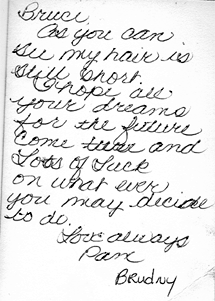 Bruce,
As you can
see my hair is
still short.
I hope all
your dreams
for the future
come true and
Lots of Luck
on what ever
you may decide
to do.
Love always
Pam
BRUDNY